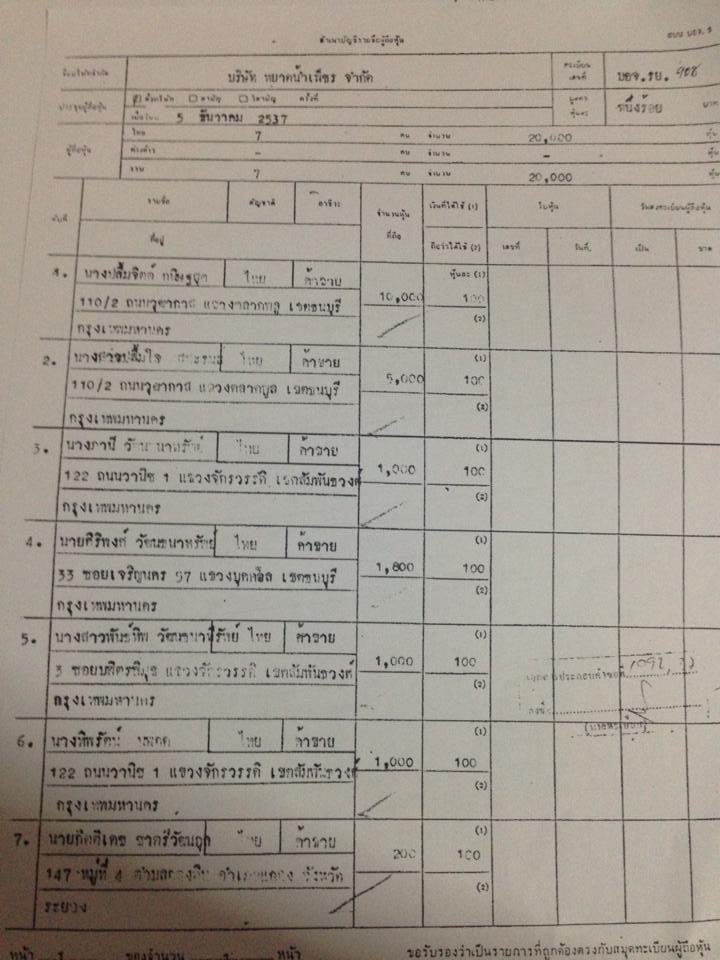 สำเนาบัญชีรายชื่อผู้ถือหุ้น
แบบ บอจ. 5
ชื่อบริษัทจำกัด
บริษัท หยาดน้ำเพ็ชร จำกัด
ทะเบียนเลขที่ บอจ.รย. 908
ประชุมผู้ถือหุ้น
ตั้งบริษัท สามัญ วิสามัญ ครั้งที่
เมื่อวันที่ 5 ธันวาคม 2537
มูลค่าหุ้นละ หนึ่งร้อย บาท
ผู้ถือหุ้น
ไทย 7 คน จำนวน 20,000 หุ้น
ต่างด้าว - คน จำนวน - หุ้น
รวม 7 คน จำนวน 20,000 หุ้น
ลำดับที่
รายชื่อ สัญชาติ อาชีพ
ที่อยู่
จำนวนหุ้นที่ถือ
เงินที่ได้ใช้ (1)
ถือว่าได้ใช้ (2)
ใบหุ้น
เลขที่ วันที่
วันลงทะเบียนผู้ถือหุ้น
เป็น ขาด
หุ้นละ (1)
1. นางปลื้มจิตต์ ไทย ค้าขาย
110/2 ถนนวุฒากาศ แขวงตลาดพลู เขตธนบุรี 10,000 100
(2)
กรุงเทพมหานคร
2. ไทย ค้าขาย (1)
110/2 ถนนวุฒากาศ แขวงตลาดพลู เขตธนบุรี 5,000 100
(2)
กรุงเทพมหานคร
3. ไทย ค้าขาย (1)
122 ถนนวานิช 1 แขวงจักรวรรดิ เขตสัมพันธวงศ์ 1,000 100
(2)
กรุงเทพมหานคร
4. นายศิริพงศ์ วัฒนธนาทรัพย์ ไทย ค้าขาย (1)
33 ซอยเจริญนคร 57 แขวงบุคคโล เขตธนบุรี 1,800 100
(2)
กรุงเทพมหานคร
5. นางสาวพันธ์ทิพ ไทย ค้าขาย (1)
3 ซอยบพิตรพิมุข แขวงจักรวรรดิ เขตสัมพันธวงศ์ 1,000 100
(2)
กรุงเทพมหานคร
6. นางทิพรัตน์ ไทย ค้าขาย (1)
122 ถนนวานิช 1 แขวงจักรวรรดิ เขตสัมพันธวงศ์ 1,000 100
(2)
กรุงเทพมหานคร
7. นายกิตติเดช ไทย ค้าขาย (1)
147 หมู่ที่ 4 จังหวัด 200 100
(2)
ระยอง
(นายทะเบียน)
หน้า ของจำนวน หน้า
ขอรับรองว่าเป็นรายการที่ถูกต้องตรงกับสมุดทะเบียนผู้ถือหุ้น